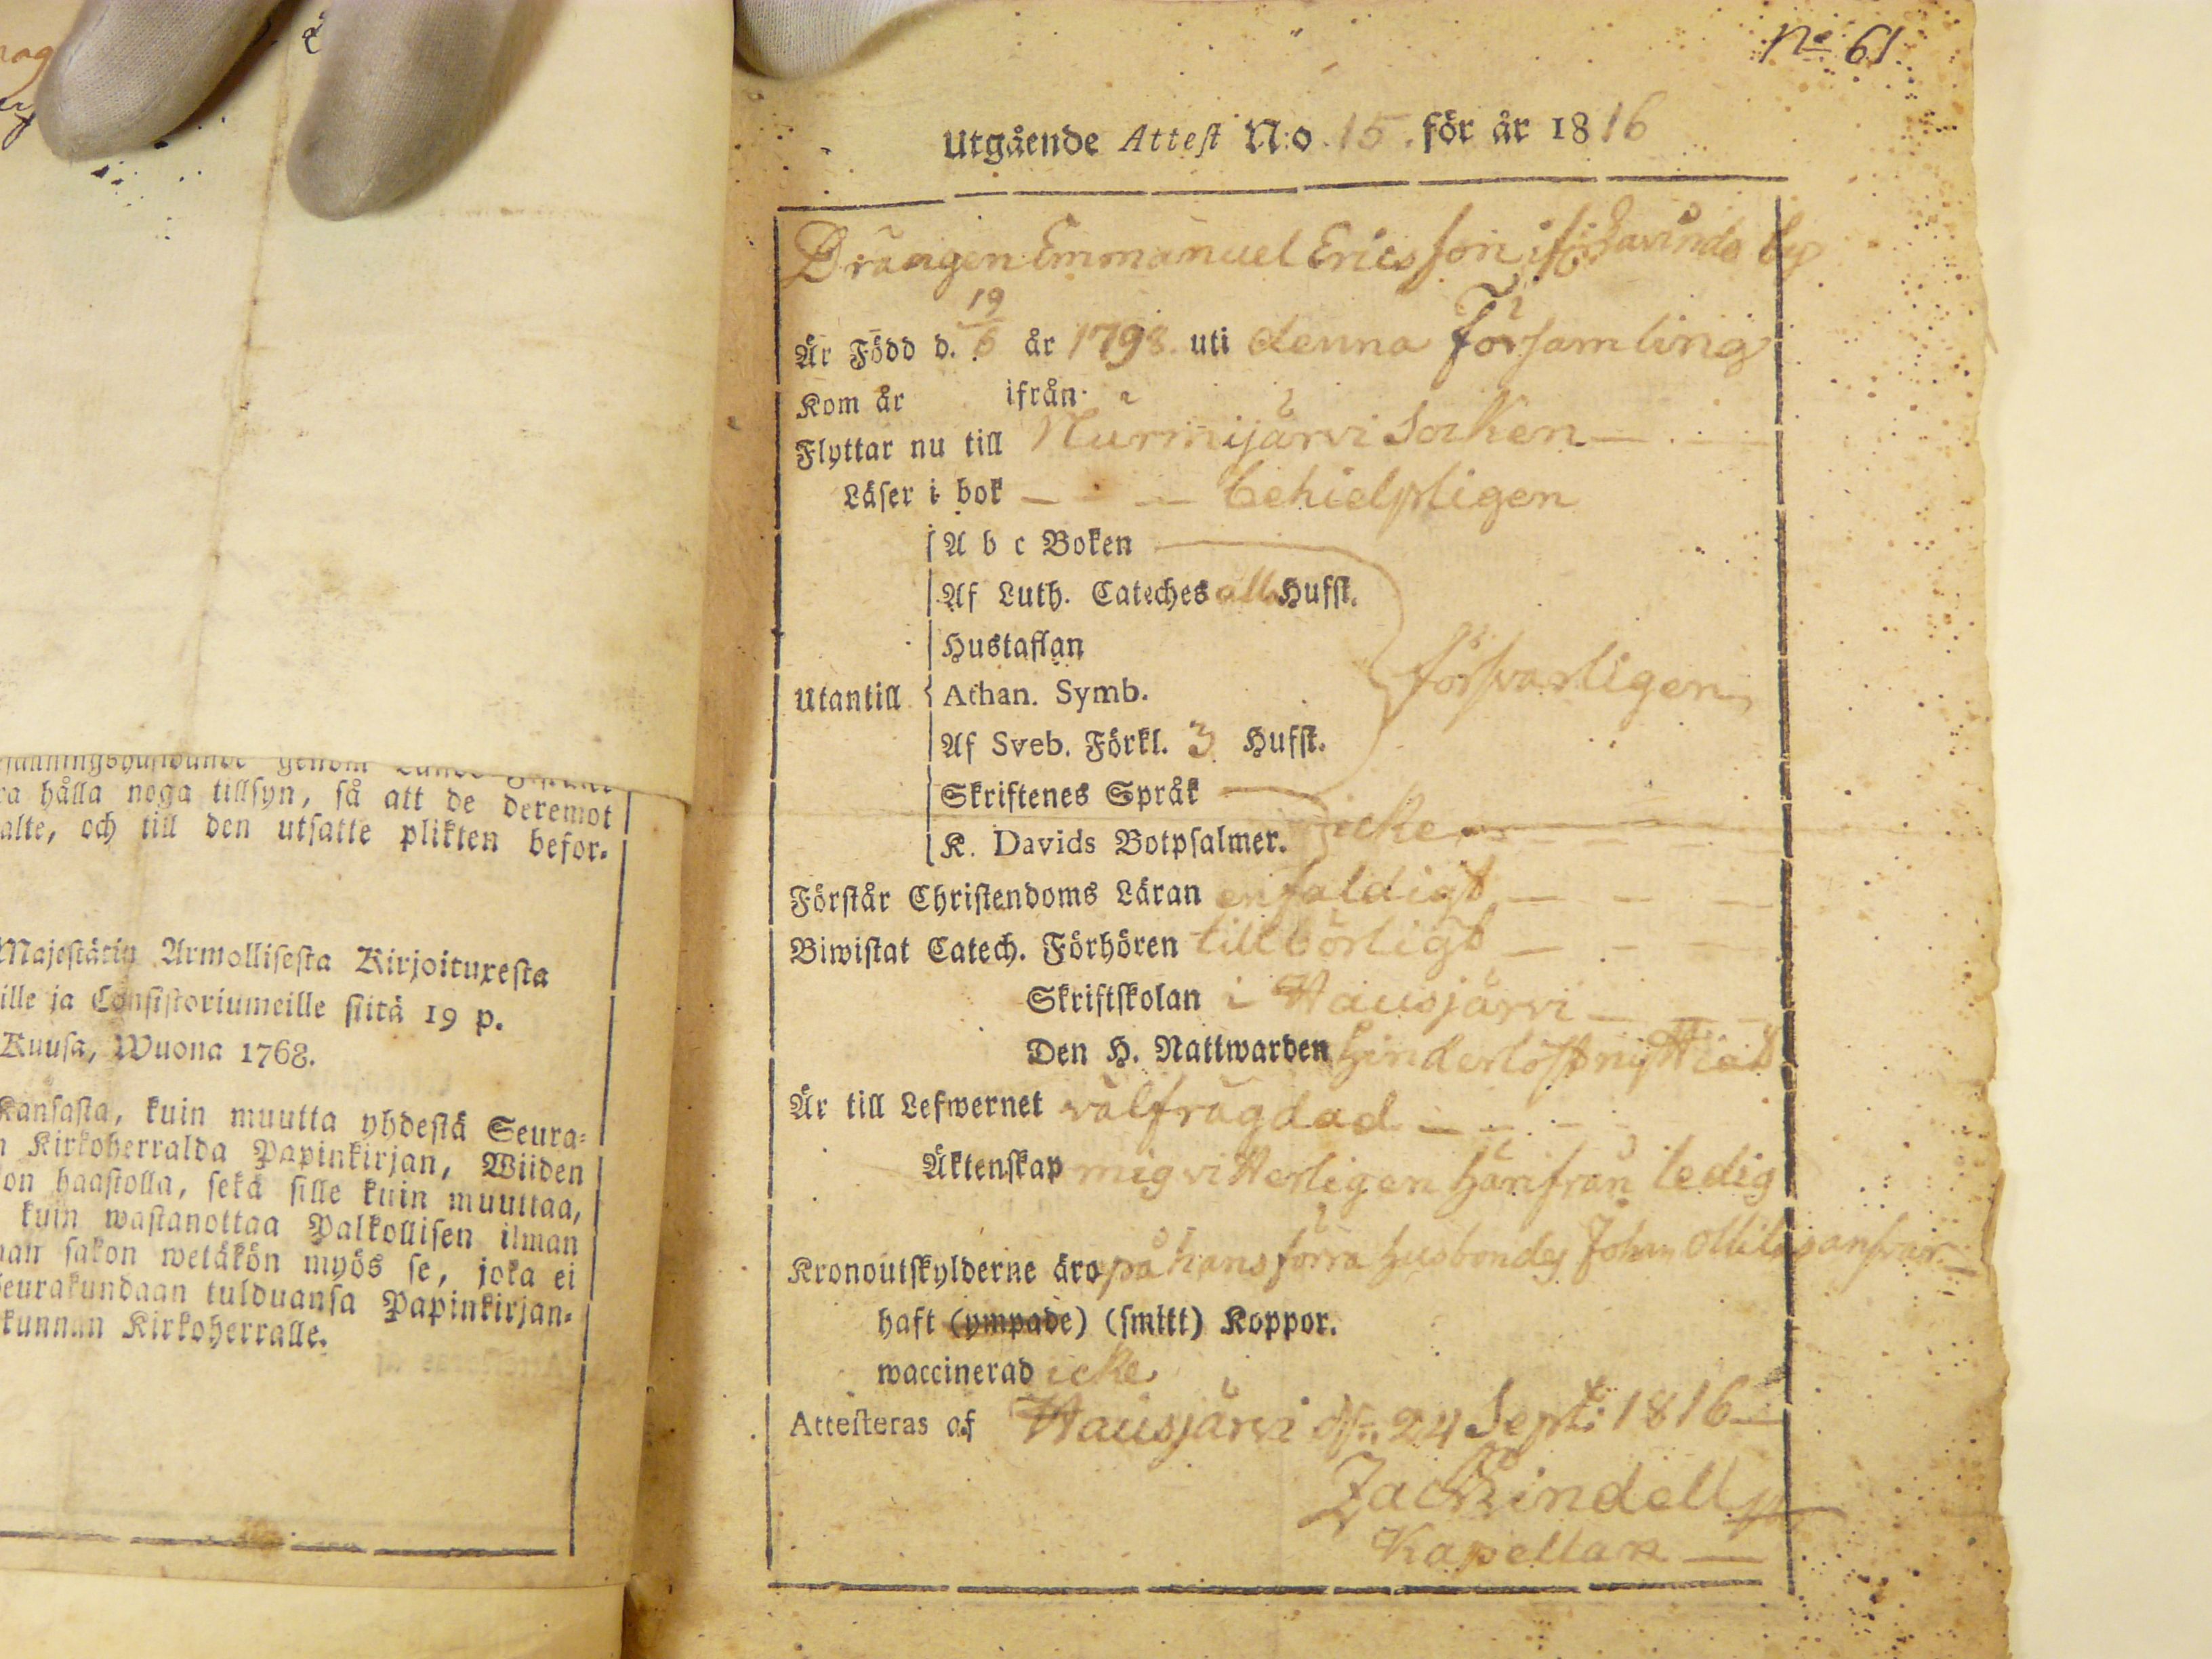 hålla noga tillsyn, så att de deremot
och till den utsatte plikten befor-
Majestätin Armollisesta Kirjoituxesta
ja Consistoriumeille siitä 19 p.
Kuusa, Wuona 1768.
Kansasta, kuin muutta yhdestä Seura-
Kirkoherralda Papinkirjan, Wiiden
haastolla, sekä sille kuin muuttaa,
kuin wastanottaa Palkollisen ilman
sakon wetäkön myös se, joka ei
seurakundaan tulduansa Papinkirjan-
kunnan Kirkoherralle.
No 61
Utgående Attest N:o 15. för år 1816
Drängen Emmanuel Ericsson by
Är Född d. 19/6 år 1798 uti denna Församling
Kom år ifrån
Flyttar nu till Nurmijärvi Socken
Läser i bok — — behielpligen
A b c Boken
Af Luth. Cateches alla Hufst.
Hustaflan
Utantill Athan. Symb. försvarligen
Af Sveb. Förkl. 3 Hufst.
Skriftenes Språk
K. Davids Botpsalmer. icke
Förstår Christendoms Läran enfaldigt
Biwistat Catech. Förhören tillbörligt
Skriftskolan i Hausjärvi
Den H. Nattwarden hinderlöst nyttiat
Är till Lefwernet välfrägdad
Äktenskap mig vitterligen härifrån ledig
Kronoutskylderne äro på hans förra husbondes Johan ansvar
haft (ympade) (smitt) Koppor.
waccinerad icke
Attesteras af Hausjärvi d. 24 Sept: 1816
Zach Lindell
Kapellan